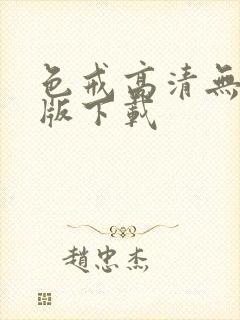 色戒高清無
版下載
趙忠杰